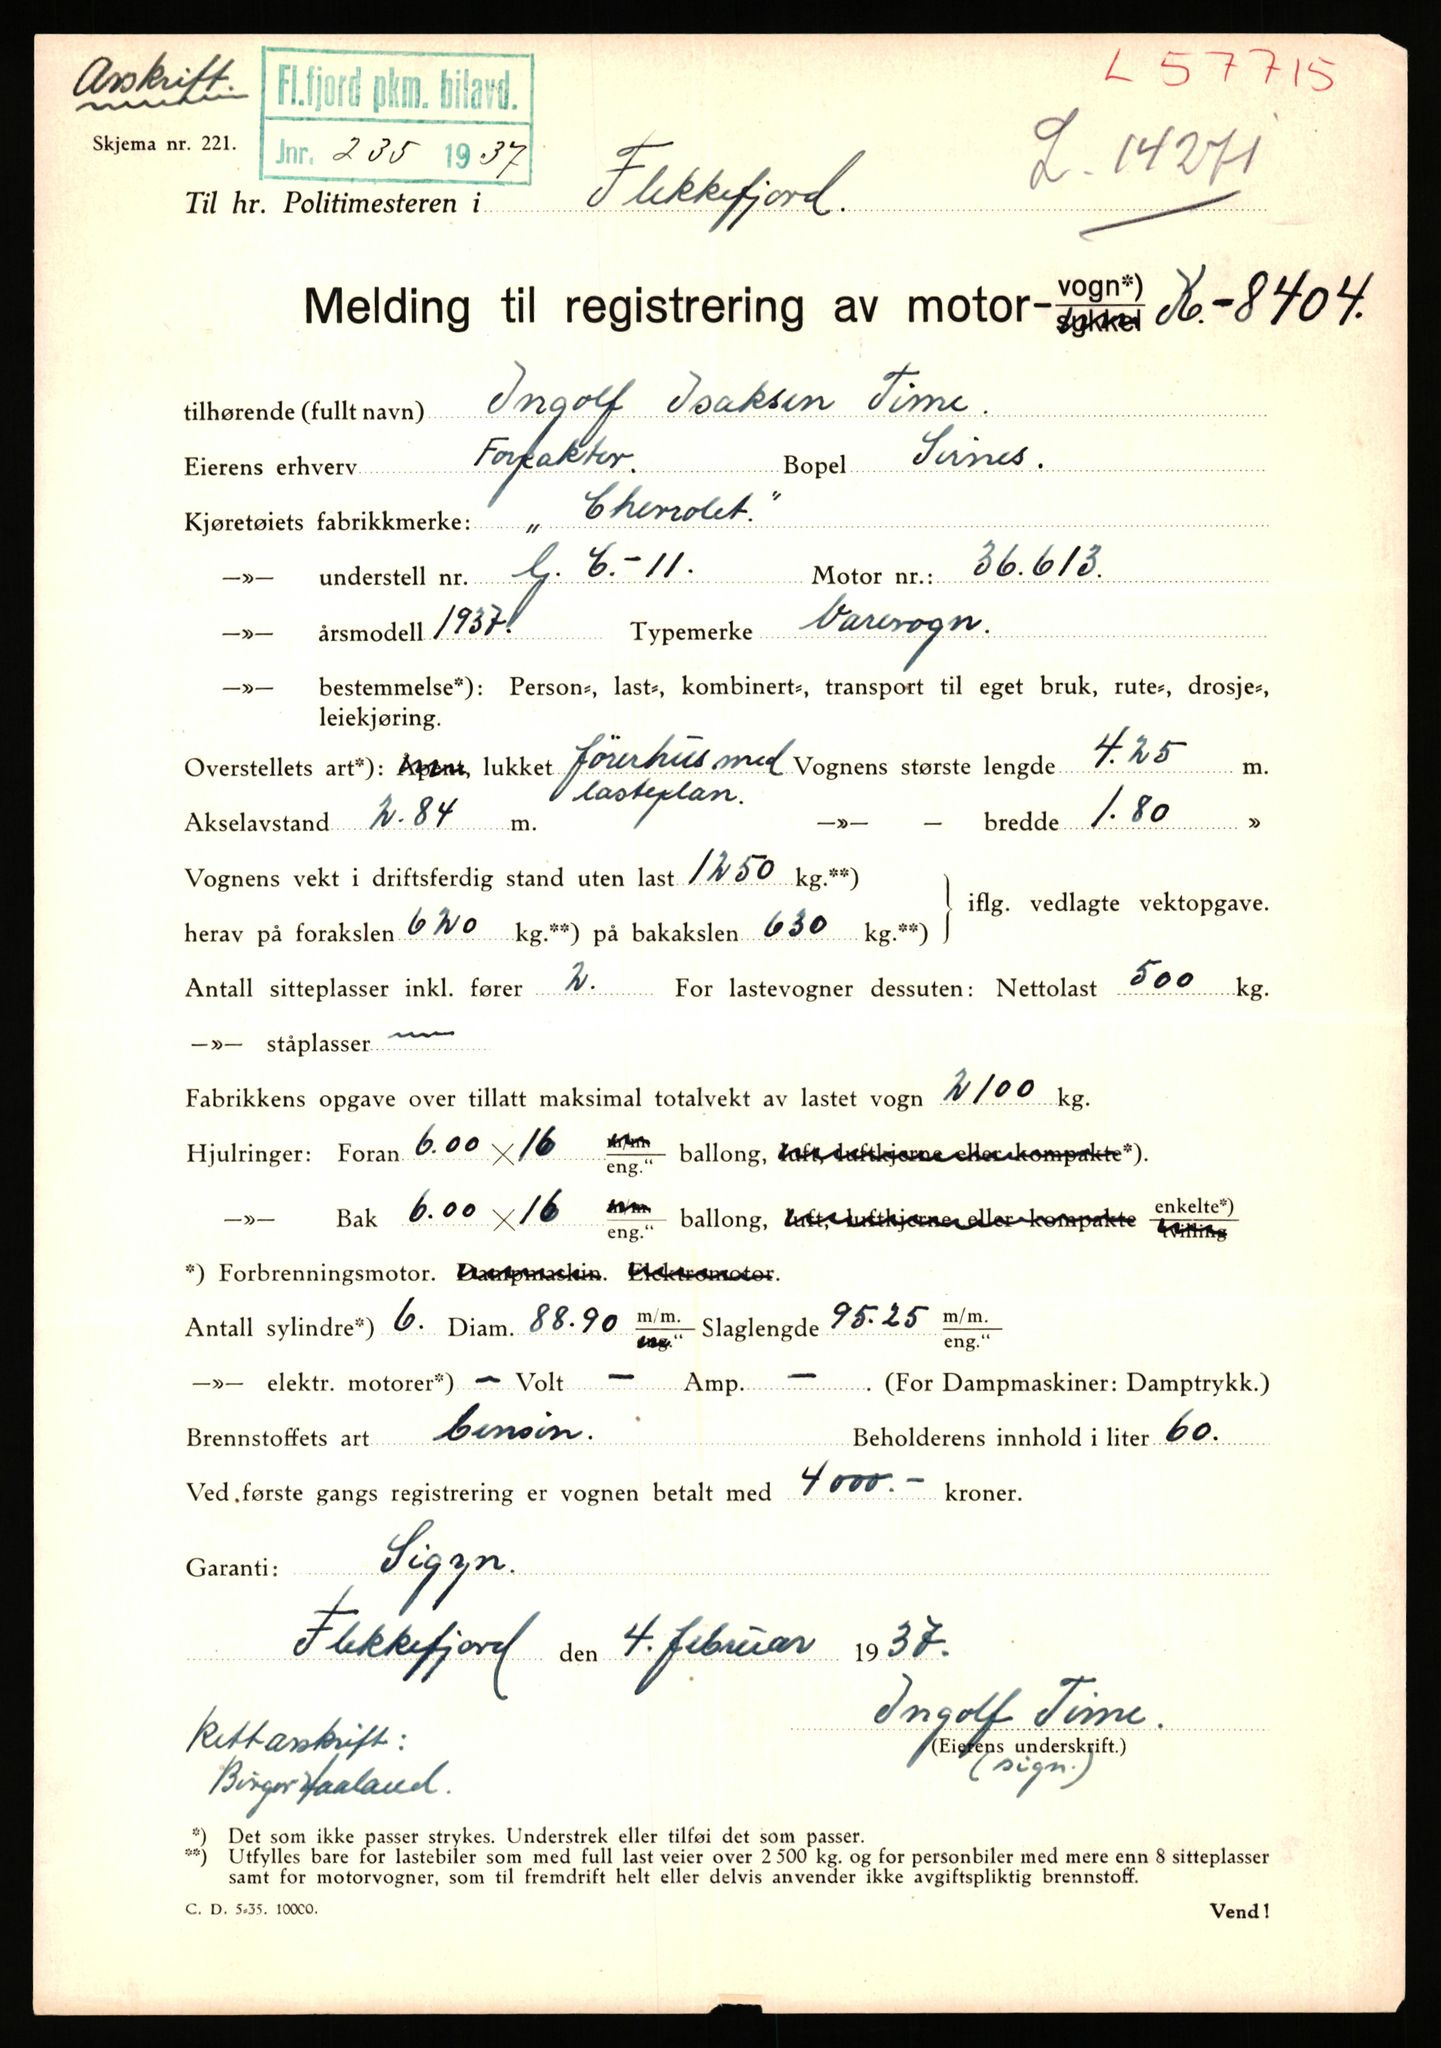 Avskrift.
Fl.fjord pkm. bilavd.
Jnr. 235 1937
L 57715
L. 14271
Skjema nr. 221.
Til hr. Politimesteren i Flekkefjord.
Melding til registrering av motor- vogn*) / sykkel K.-8404.
tilhørende (fullt navn) Ingolf Isaksen Time.
Eierens erhverv Forpakter. Bopel Sirnes.
Kjøretøiets fabrikkmerke: „Chevrolet."
—»— understell nr. G. C.-11. Motor nr.: 36.613.
—»— årsmodell 1937. Typemerke Varevogn.
—»— bestemmelse*): Person-, last-, kombinert-, transport til eget bruk, rute-, drosje-,
leiekjøring.
Overstellets art*): Åpent, lukket förerhus med Vognens største lengde 4.25 m.
lasteplan.
Akselavstand 2.84 m. —»— — bredde 1.80 »
Vognens vekt i driftsferdig stand uten last 1250 kg.**)
iflg. vedlagte vektopgave.
herav på forakslen 620 kg.**) på bakakslen 630 kg.**)
Antall sitteplasser inkl. fører 2. For lastevogner dessuten: Nettolast 500 kg.
—»— ståplasser —
Fabrikkens opgave over tillatt maksimal totalvekt av lastet vogn 2100 kg.
Hjulringer: Foran 6.00 × 16 m/m / eng." ballong, luft, luftkjerne eller kompakte*).
—»— Bak 6.00 × 16 m/m / eng." ballong, luft, luftkjerne eller kompakte enkelte*) / tvilling
*) Forbrenningsmotor. Dampmaskin. Elektromotor.
Antall sylindre*) 6. Diam. 88.90 m/m. / eng." Slaglengde 95.25 m/m. / eng."
—»— elektr. motorer*) — Volt — Amp. — . (For Dampmaskiner: Damptrykk.)
Brennstoffets art bensin. Beholderens innhold i liter 60.
Ved første gangs registrering er vognen betalt med 4000.- kroner.
Garanti: Sigyn.
Flekkefjord den 4. februar 1937.
Ingolf Time.
(Eierens underskrift.)
(sign.)
Rett avskrift:
Birger Haaland.
*) Det som ikke passer strykes. Understrek eller tilføi det som passer.
**) Utfylles bare for lastebiler som med full last veier over 2 500 kg. og for personbiler med mere enn 8 sitteplasser
samt for motorvogner, som til fremdrift helt eller delvis anvender ikke avgiftspliktig brennstoff.
C. D. 5-35. 10000.
Vend!